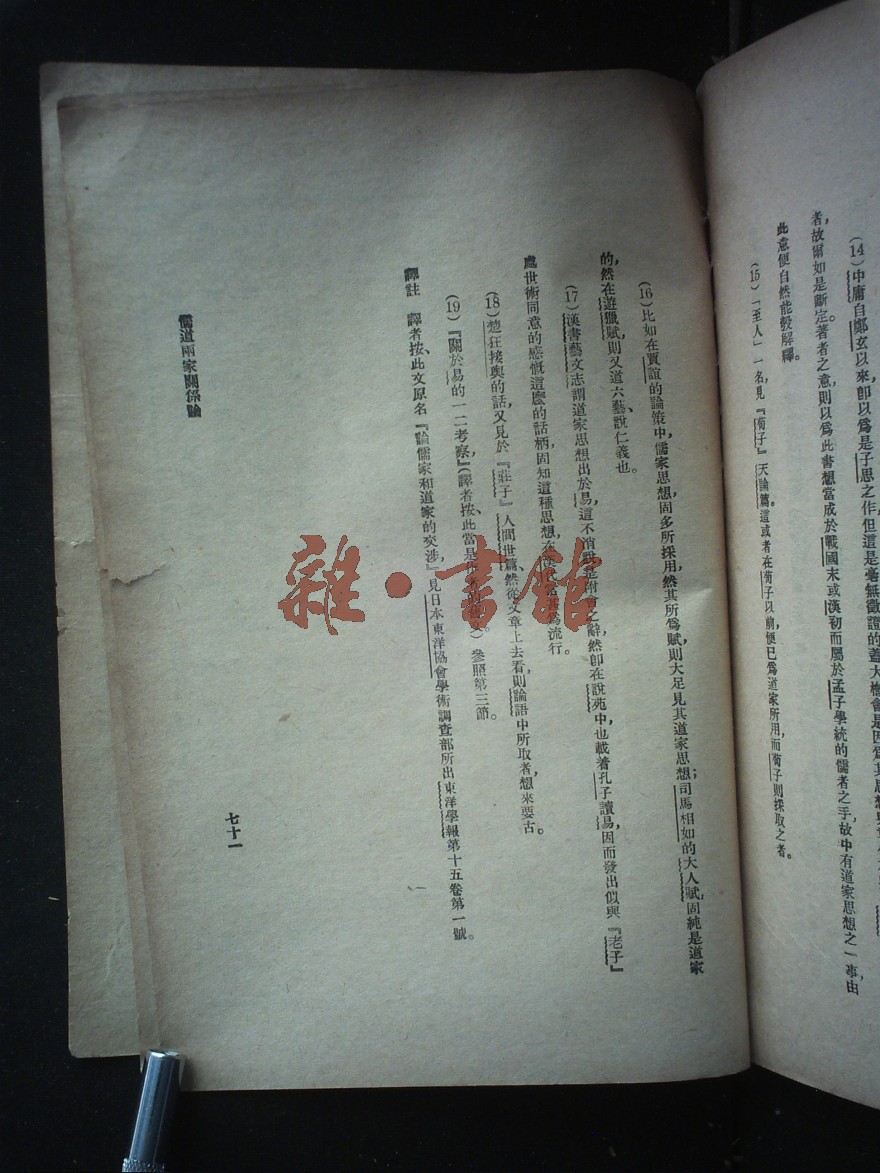 (14)中庸自鄭玄以來，卽以爲是子思之作但這是毫無徵證的蓋大
者，故爾如是斷定。著者之意，則以爲此書想當成於戰國末或漢初而屬於孟子學統的儒者之手，故中有道家思想之一事，由
此意便自然能彀解釋。
(15)「至人」一名，見『荀子』天論篇。這或者在荀子以前，便已爲道家所用，而荀子則採取之者。
(16)比如在賈誼的論策中，儒家思想，固多所採用，然其所爲賦，則大足見其道家思想；司馬相如的大人賦，固純是道家
的，然在遊獵賦，則又道六藝、說仁義也。
(17)漢書藝文志謂道家思想出於易，這不消說是附會之辭，然卽在說苑中，也載着孔子讀易，因而發出似與『老子』
處世術同意的感慨這麼的話柄，固知這種思想，在爲流行。
(18)楚狂接輿的話，又見於『莊子』人間世篇、然從文章上去看，則論語中所取者，想來要古。
(19)『關於易的一二考察』(譯者按、此當是) 參照第三節。
譯註　譯者按、此文原名『論儒家和道家的交涉』，見日本東洋協會學術調查部所出東洋學報第十五卷第一號。
儒道兩家關係論
七十一
雜·書館